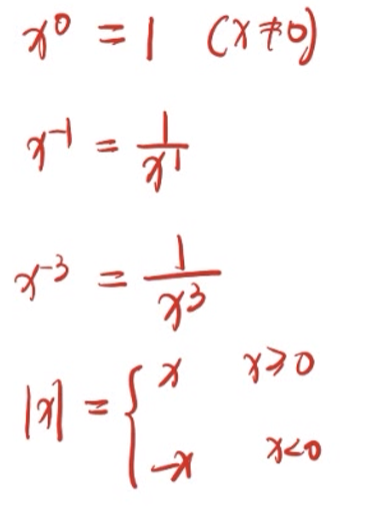 x⁰ = 1 (x≠0)
x⁻¹ = 1/x¹
x⁻³ = 1/x³
|x| = { x x≥0
-x x<0